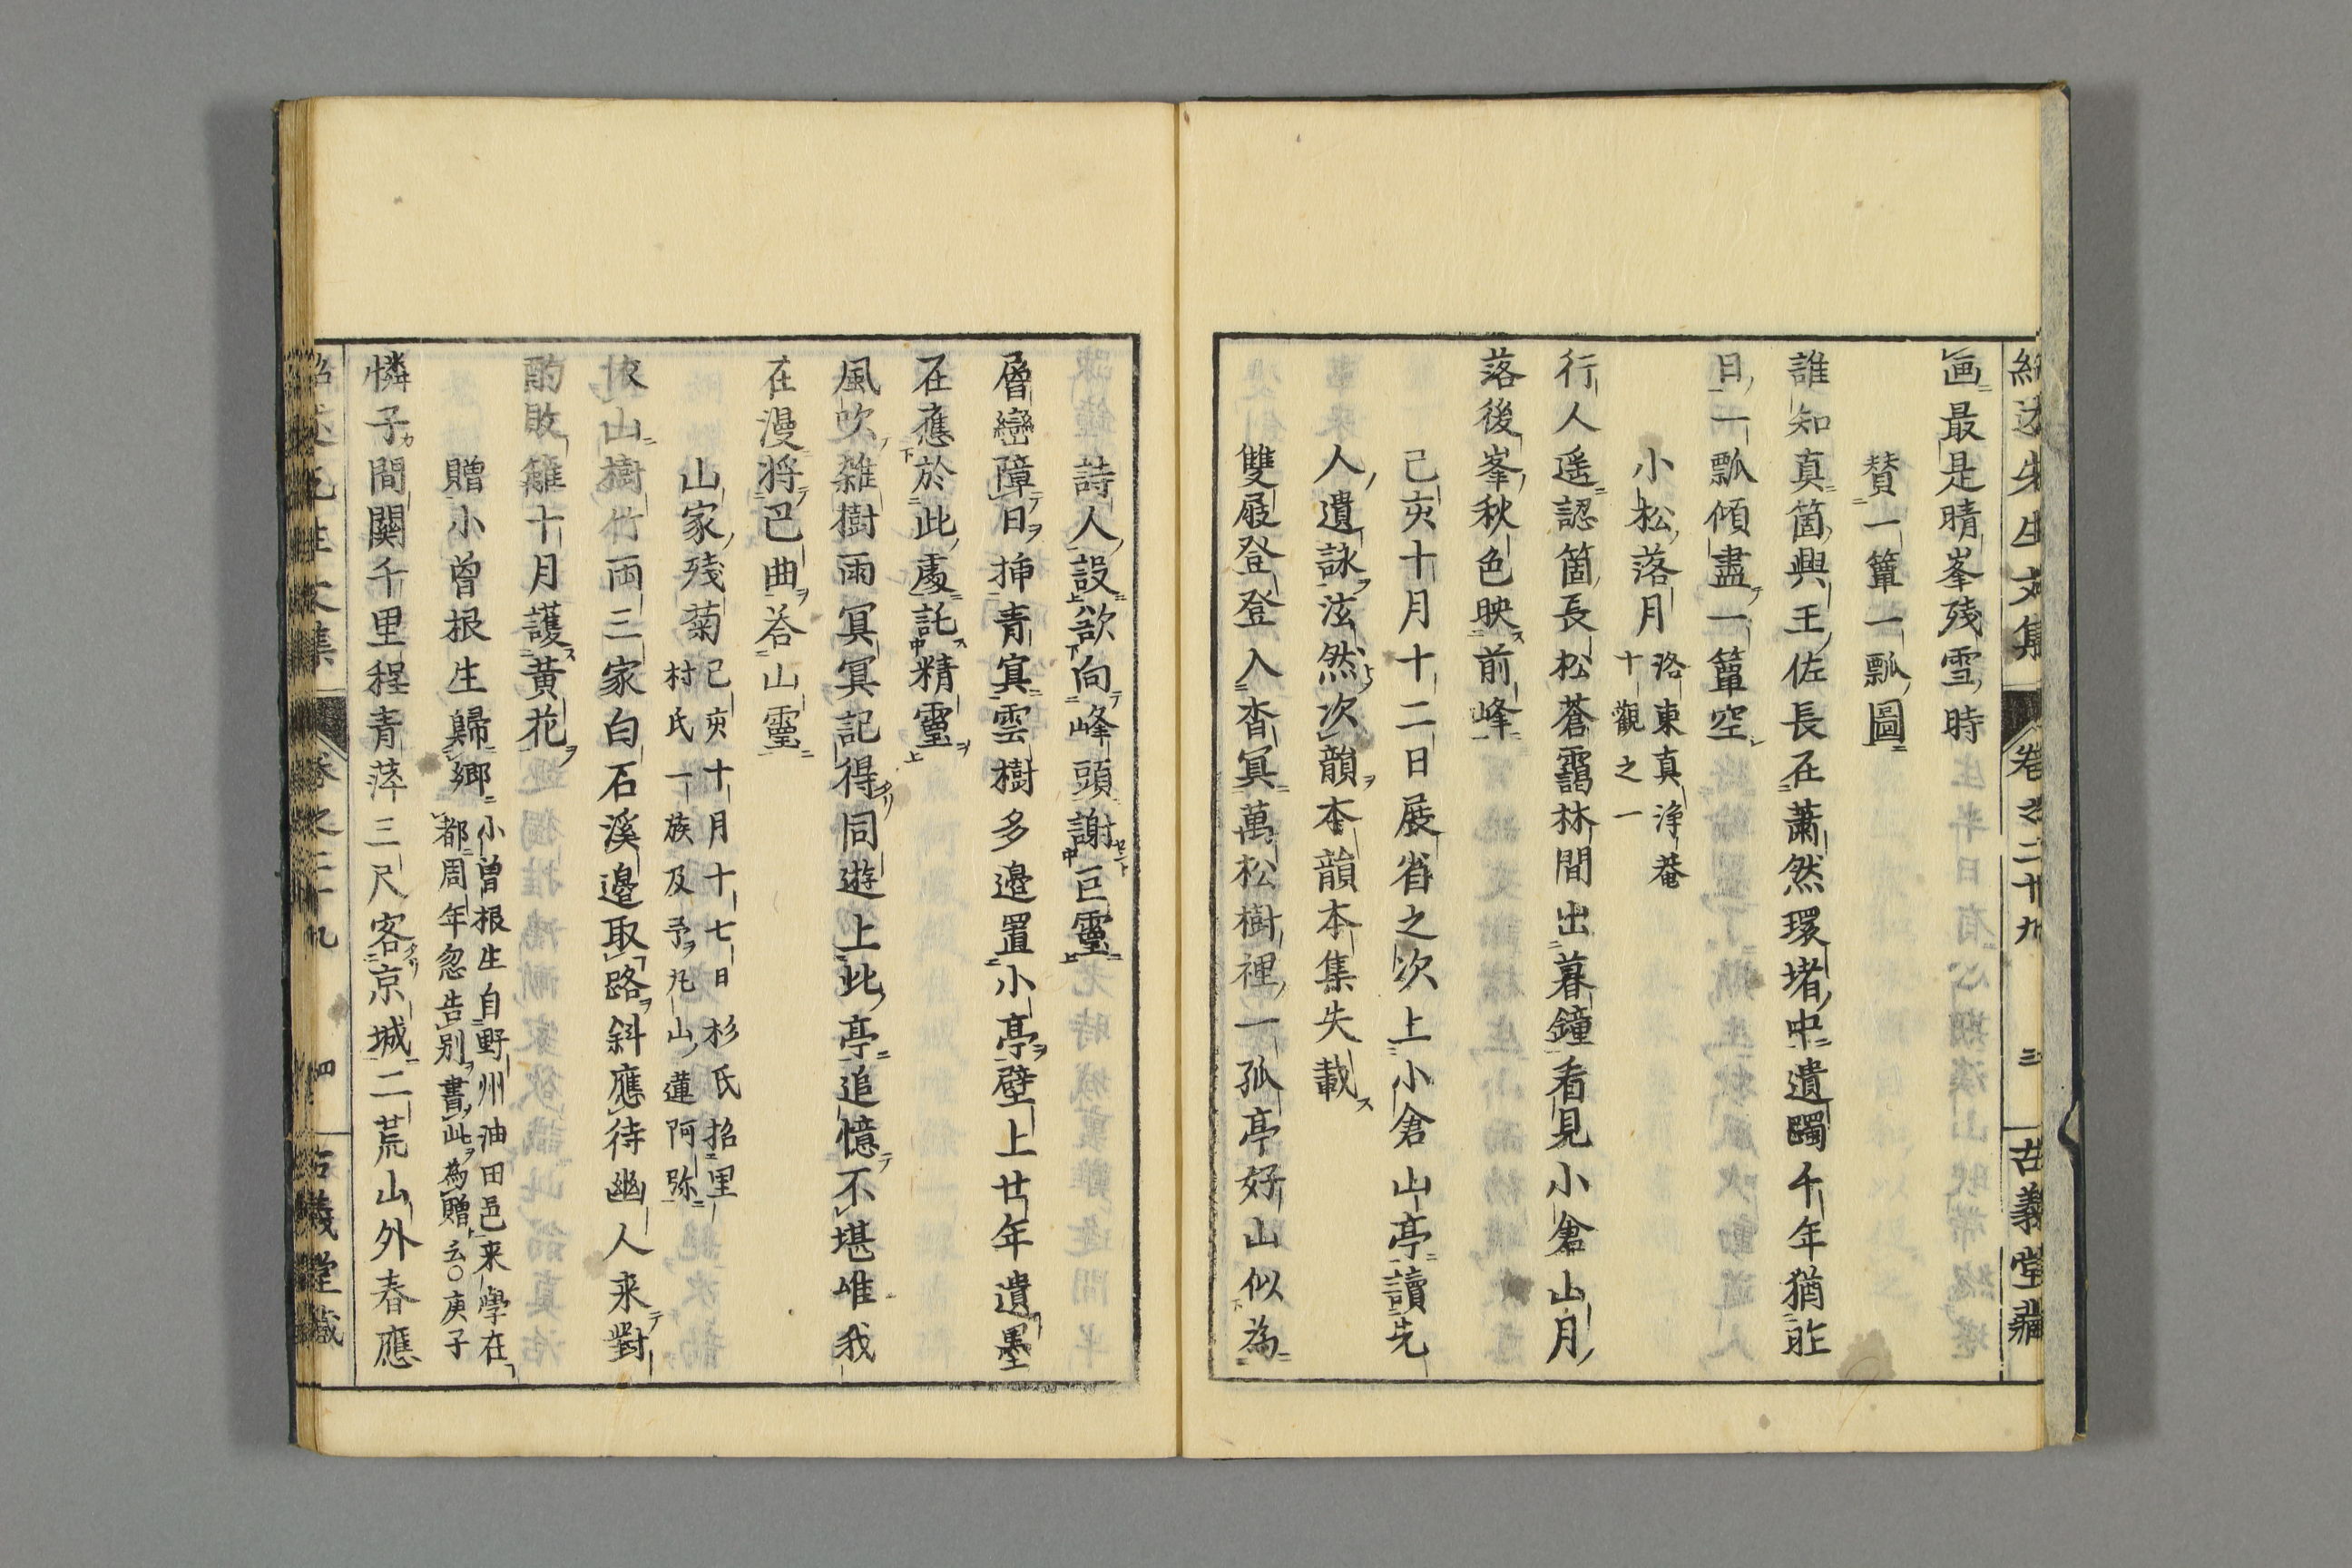 紹述先生文集 卷之二十九 三 古義堂藏
画最是晴峯殘雪時
賛一簞一瓢圖
誰知真箇興王佐長在蕭然環堵中遺躅千年猶昨
日一瓢傾盡一簞空
小松落月 洛東真淨菴
十觀之一
行人遥認箇長松蒼靄林間出暮鐘看見小倉山月
落後峯秋色映前峰
己亥十月十二日展省之次上小倉山亭讀先
人遺詠泫然次韻本韻本集失載
雙屐登登入杳冥萬松樹裡一孤亭好山似為
詩人設欲向峰頭謝巨靈
層巒障日揷青冥雲樹多邉置小亭壁上廿年遺墨
在應於此處託精靈
風吹雜樹雨冥冥記得同遊上此亭追憶不堪唯我
在漫将巴曲荅山靈
山家殘菊 己亥十月十七日杉氏招里
村氏一族及予九山蓮阿弥
依山樹竹両三家白石溪邉取路斜應待幽人来對
酌敗籬十月護黄花
贈小曽根生歸郷 小曽根生自野州油田邑来學在
都周年忽告别書此為贈云〇庚子
憐子間關千里程青萍三尺客京城二荒山外春應
紹述先生文集 卷之二十九 四 古義堂藏